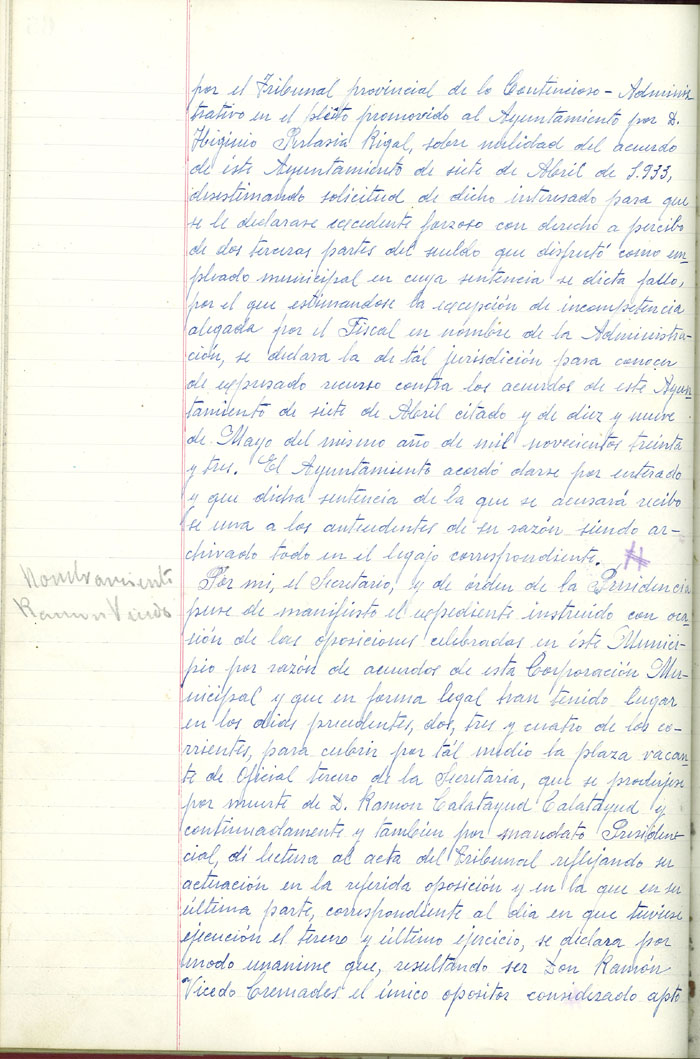 por el Tribunal provincial de lo Contencioso-Adminis
trativo en el pleito promovido al Ayuntamiento por D.
Higinio Perlasia Rigal, sobre nulidad del acuerdo
de éste Ayuntamiento de siete de Abril de 1.933,
desestimando solicitud de dicho interesado para que
se le declarase excedente forzoso con derecho a percibo
de dos terceras partes del sueldo que disfrutó como em
pleado municipal en cuya sentencia se dicta fallo,
por el que estimandose la excepción de incompetencia
alegada por el Fiscal en nombre de la Administra-
ción, se declara la de tál jurisdición para conocer
de expresado recurso contra los acuerdos de este Ayun
tamiento de siete de Abril citado y de diez y nueve
de Mayo del mismo año de mil novecientos treinta
y tres. El Ayuntamiento acordó darse por enterado
y que dicha sentencia de la que se acusará recibo
se una a los antecedentes de su razón siendo ar-
chivado todo en el legajo correspondiente.
Nombramiento
Ramon Vicedo
Por mi, el Secretario, y de órden de la Presidencia
puse de manifiesto el expediente instruido con oca
sión de las oposiciones celebradas en éste Munici-
pio por razón de acuerdos de esta Corporación Mu-
nicipal y que en forma legal han tenido lugar
en los dias precedentes, dos, tres y cuatro de los co-
rrientes, para cubrir por tál medio la plaza vacan
te de Oficial tercero de la Secretaria, que se produjese
por muerte de D. Ramon Calatayud Calatayud y
continuadamente y tambien por mandato Presiden-
cial, dí lectura al acta del Tribunal reflejando su
actuación en la referida oposición y en la que en su
última parte, correspondiente al dia en que tuviese
ejecución el tercero y último ejercicio, se declara por
modo unanime que, resultando ser Don Ramón
Vicedo Cremades el único opositor considerado apto